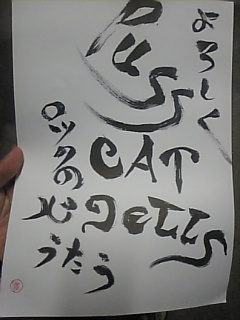 よろしく
PUSS
CAT
DOLLS
ロックの心
うたう